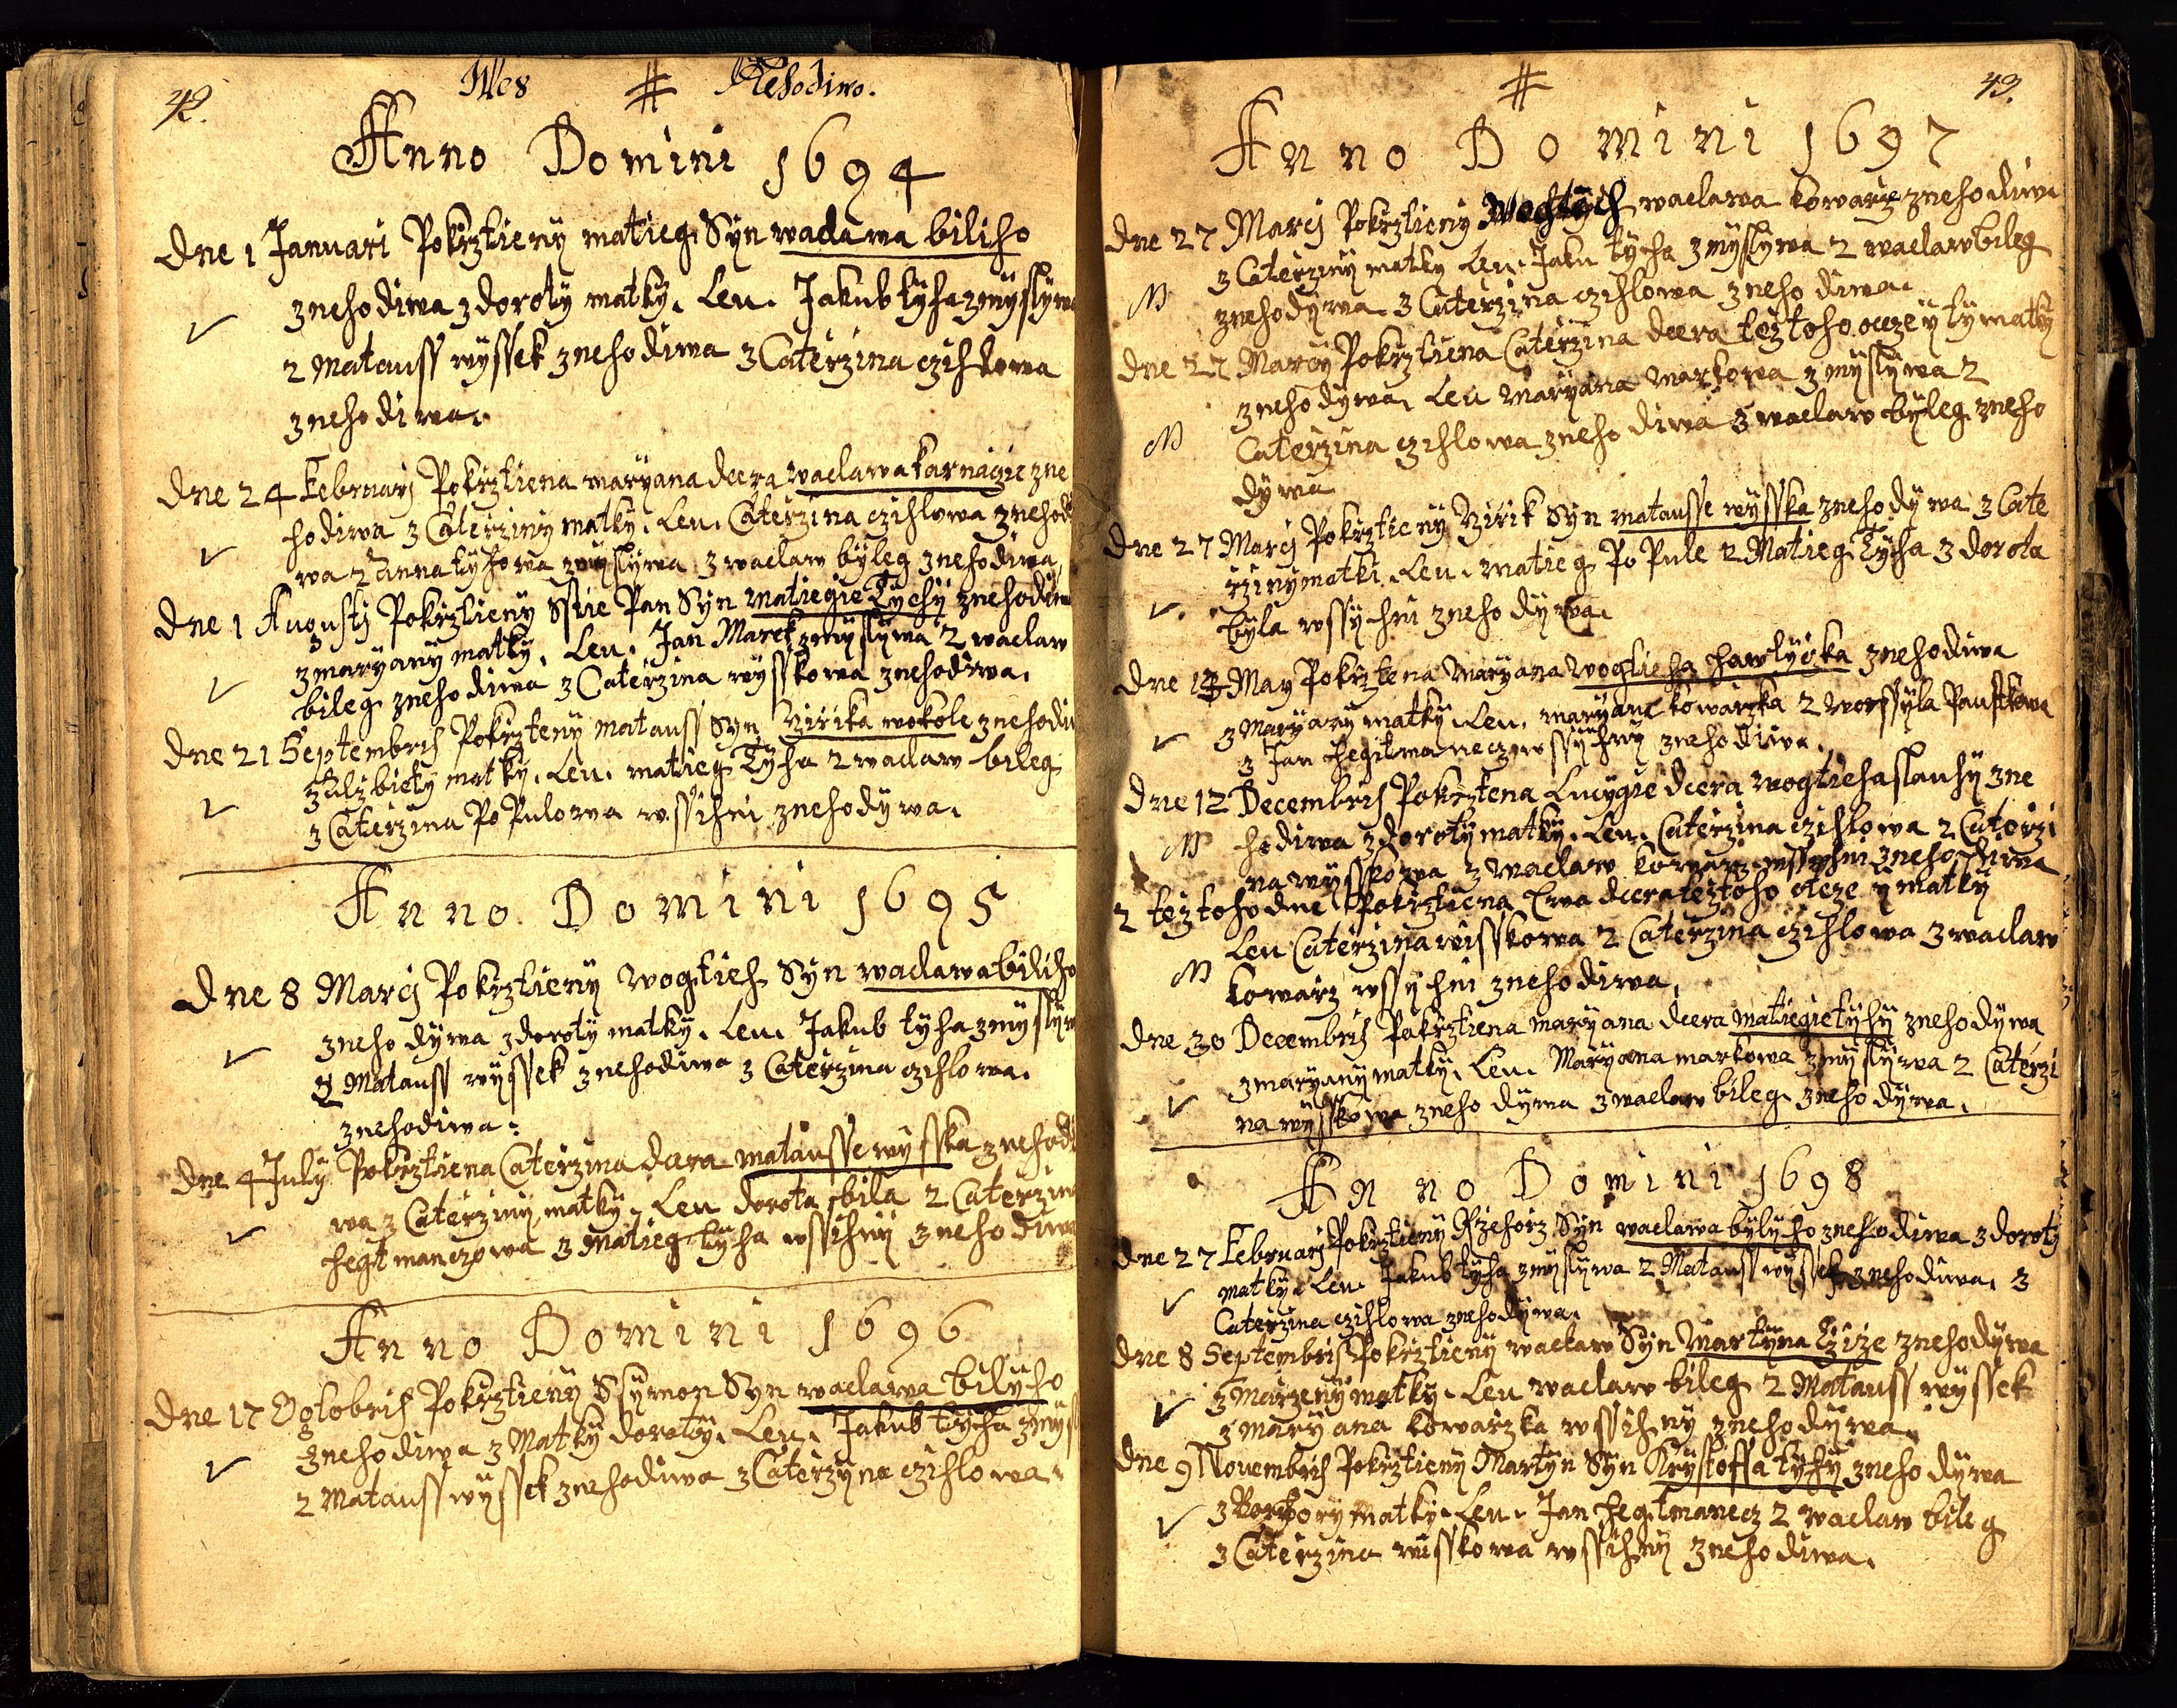 42. Wes # Nehodiwo.
Anno Domini 1694
dne 1 Januari Pokrztieny matieg Syn waclawa biliho
znehodiwa z doroty matky. Leu. Jakub tyha zmyslywa
2 Matauss wyssek znehodiwa 3 Caterzina czihlowa
znehodiwa.
dne 24 Februarj Pokrztiena maryana dcera waclawa karnagie zne
hodiwa z Caterziny matky. Leu. Caterzina czihlowa znehodi
wa 2 Anna tyhowa zmyslywa 3 waclaw byleg znehodiwa,
dne 1 Augustj Pokrztieny Sstie Pan Syn matiegie Tychy znehodiw
z maryany matky. Leu. Jan Marek zmyslywa 2 waclaw
bileg znehodiwa 3 Caterzina wysskowa znehodiwa.
dne 21 Septembris Pokrzteny matauss Syn Nirika wokole znehodiw
z alzbiety matky. Leu. matieg Tyha 2 waclaw bileg
3 Caterzina PoPulowa wssihni znehodywa.
Anno Domini 1695
dne 8 Marcj Pokrztieny wogtieh Syn waclawa biliho
znehodywa z doroty matky. Leu. Jakub tyha zmyslyw
2 Matauss wyssek znehodiwa 3 Caterzina czihlowa.
znehodiwa.
dne 4 July Pokrztiena Caterzina dcera matausse wysska znehodi
wa z Caterziny matky. Leu dorota bila 2 Caterzina
hegtmanczowa 3 matieg tyha wssihny znehodiwa
Anno Domini 1696
dne 17 Ogtobris Pokrztieny Ssymon Syn waclawa bilyho
znehodiwa z Matky doroty. Leu. Jakub tycha zmys
2 Matauss wyssek znehodiwa 3 Caterzyna czihlowa.
# 43.
Anno Domini 1697
dne 27 Marcj Pokrztieny Wogtych waclawa kowarze znehodiwa
z Caterziny matky Leu. Jaku tycha zmyslywa 2 waclaw bileg
N znehodywa 3 Caterzina czihlowa znehodiwa.
dne 27 Marcy Pokrztiena Caterzina dcera teztoho otcze y ty matky
znehodywa, Leu Maryana Markowa zmyslywa 2
N Caterzina czihlowa znehodiwa 3 waclaw byleg zneho
dywa
dne 27 Marcj Pokrztieny Nirik Syn matausse wysska znehodywa z Cate
rziny matki. Leu. matieg PoPule 2 Matieg Tycha 3 dorota
byla wssychni znehodywa.
dne 13 May Pokrztena Maryana wogtieha hawlycka znehodiwa
z Maryany matky. Leu. maryana kowarzka 2 worssyla Paustkowa
3 Jan hegtmanecz wssychny znehodiwa.
dne 12 Decembris Pokrztena Lucygie dcera wogtieha slauhy zne
N hodiwa z doroty matky. Leu. Caterzina czihlowa 2 Caterzi
na wysskowa 3 waclaw kowarz wssychni znehodiwa
2 teztoho dne Pokrztiena Ewa dcera teztoho otcze y matky
Leu Caterzina wisskowa 2 Caterzina czihlowa 3 waclaw
N kowarz wssychni znehodiwa,
dne 30 Decembris Pokrztiena maryana dcera matiegie tyhy znehodywa
z maryany matky. Leu. Maryana markowa zmyslywa 2 Caterzi
na wysskowa znehodywa 3 waclaw bileg znehodywa.
Anno Domini 1698
dne 27 Februarj Pokrztieny Rzehorz Syn waclawa bylyho znehodiwa z doroty
matky. Leu. Jakub tyha zmyslywa 2 Matauss wyssek znehodiwa. 3
Caterzina czihlowa znehodywa.
dne 8 Septembris Pokrztieny waclaw Syn Martyna Czize znehodywa
z Marzeny matky. Leu waclaw bileg 2 Matauss wyssek
3 maryana kowarzka wssihny znehodywa.
dne 9 Novembris Pokrztieny Martyn Syn Krystoffa tyhy znehodywa
z Barbory Matky. Leu. Jan hegtmanecz 2 waclaw bileg
3 Caterzina wisskowa wssihny znehodiwa.